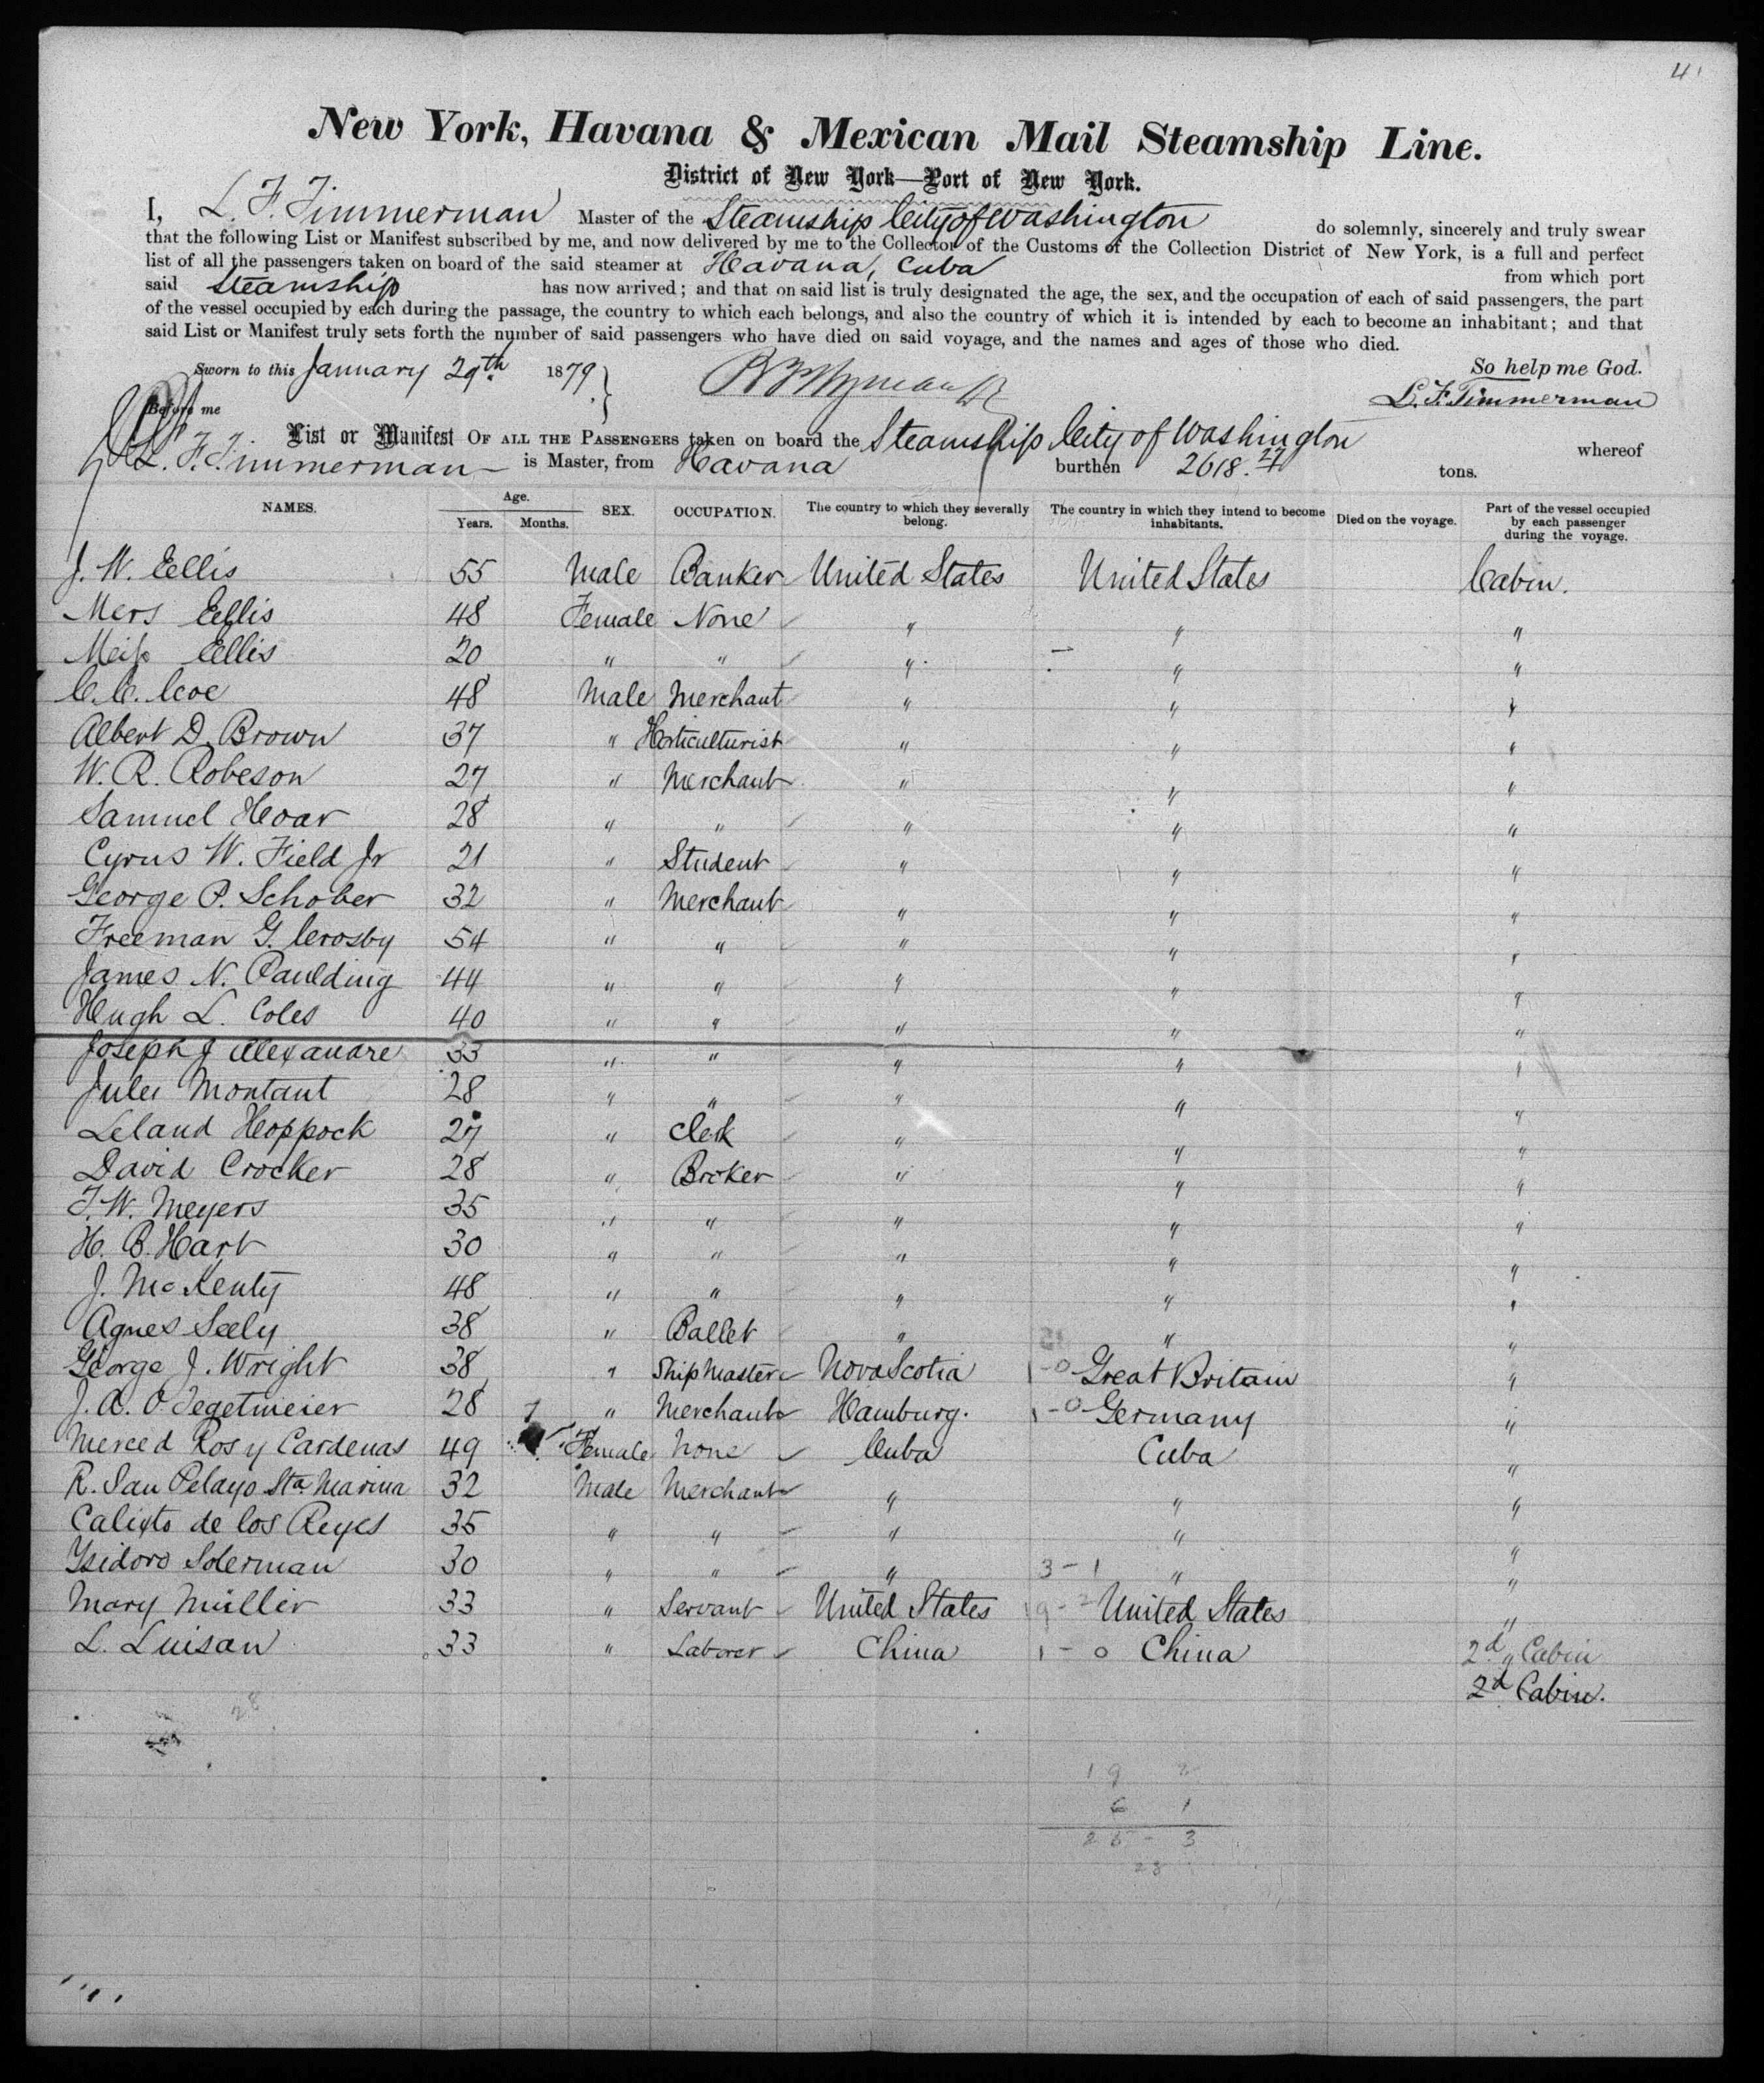 41
New York, Havana & Mexican Mail Steamship Line.
District of New York—Port of New York.
I, L. F. Timmerman Master of the Steamship City of Washington do solemnly, sincerely and truly swear
that the following List or Manifest subscribed by me, and now delivered by me to the Collector of the Customs of the Collection District of New York, is a full and perfect
list of all the passengers taken on board of the said steamer at Havana, Cuba from which port
said Steamship has now arrived; and that on said list is truly designated the age, the sex, and the occupation of each of said passengers, the part
of the vessel occupied by each during the passage, the country to which each belongs, and also the country of which it is intended by each to become an inhabitant; and that
said List or Manifest truly sets forth the number of said passengers who have died on said voyage, and the names and ages of those who died.
Sworn to this January 29th 1879. So help me God.
Before me L. F. Timmerman
List or Manifest OF ALL THE PASSENGERS taken on board the Steamship City of Washington whereof
L. F. Timmerman is Master, from Havana burthen 2618.27 tons.
NAMES. Age. Years. Months. SEX. OCCUPATION. The country to which they severally belong. The country in which they intend to become inhabitants. Died on the voyage. Part of the vessel occupied by each passenger during the voyage.
J. W. Eellis 55 Male Banker United States United States Cabin.
Mers Eellis 48 Female None " " "
Meiss Eellis 20 " " " " "
C. C. Coe 48 Male Merchant " " "
Albert D. Brown 37 " Horticulturist " " "
W. R. Robeson 27 " Merchant " " "
Samuel Hoar 28 " " " " "
Cyrus W. Field Jr 21 " Student " " "
George P. Schober 32 " Merchant " " "
Freeman G. Crosby 54 " " " " "
James N. Paulding 44 " " " " "
Hugh L. Coles 40 " " " " "
Joseph J Alexandre 33 " " " " "
Jules Montant 28 " " " " "
Leland Hoppock 27 " Clerk " " "
David Crocker 28 " Broker " " "
F. W. Meyers 35 " " " " "
H. B. Hart 30 " " " " "
J. McKenty 48 " " " " "
Agnes Seely 38 " Ballet " " "
George J. Wright 38 " Ship Master Nova Scotia 1-0 Great Britain "
J. A. O. Tegetmeier 28 " Merchant Hamburg. 1-0 Germany "
Merced Ros y Cardenas 49 Female None Cuba Cuba "
R. San Pelayo Sta. Marina 32 Male Merchant " " "
Calixto de los Reyes 35 " " " " "
Ysidoro Solerman 30 " " " 3-1 " "
Mary Müller 33 " Servant United States 19-2 United States "
L. Luisan 33 " Laborer China 1-0 China 2d " Cabin
2d Cabin.
28
19 2
6 1
25 - 3
28